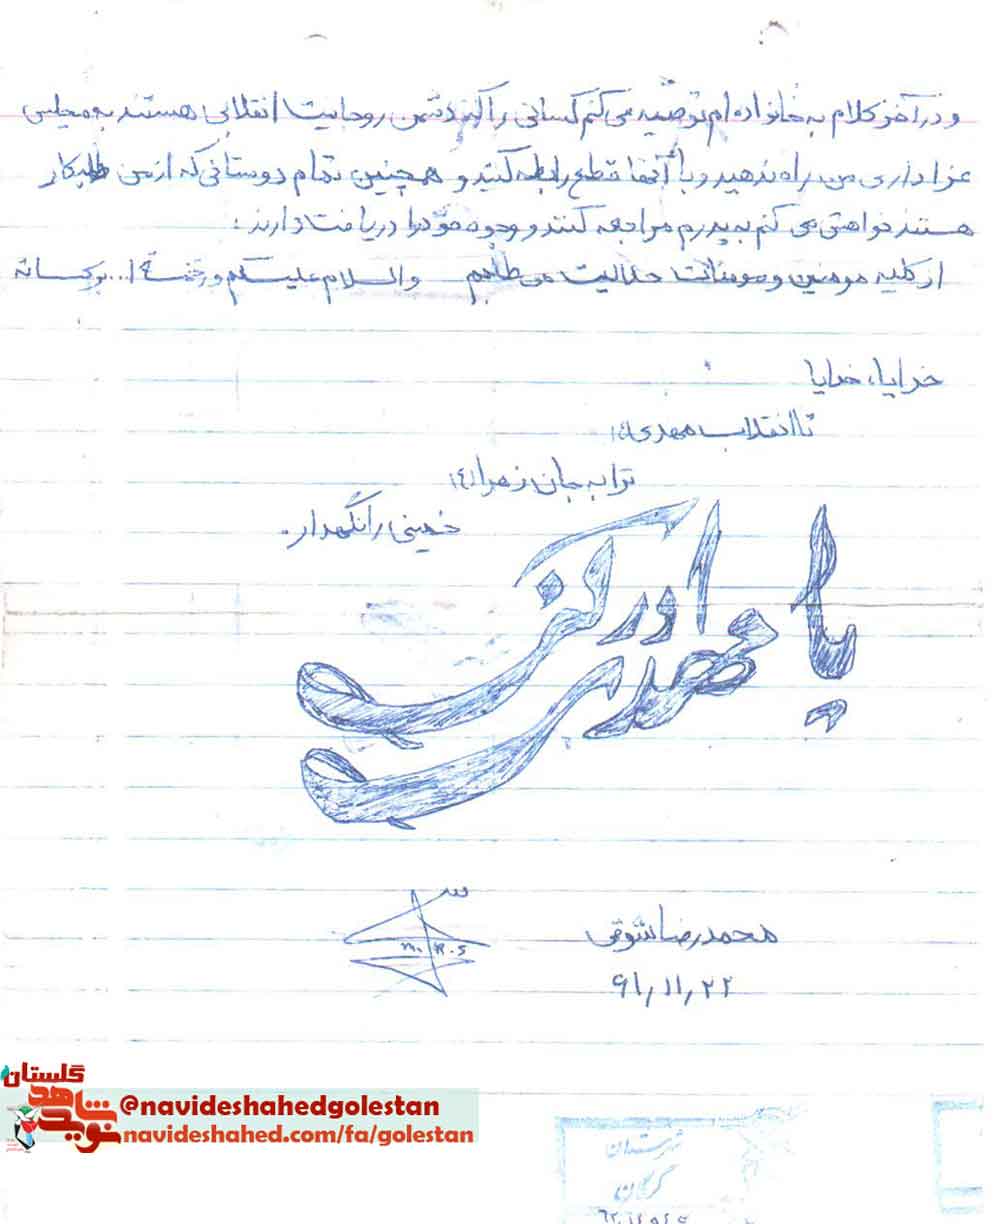 و در آخر کلام به خانواده ام توصیه می کنم کسانی را که دشمن روحانیت انقلابی هستند به مجلس
عزاداری من راه ندهید و با آنها قطع رابطه کنید و همچنین تمام دوستانی که از من طلبکار
هستند خواهش می کنم به پدرم مراجعه کنند و وجوه خود را دریافت دارند:
از کلیه مومنین و مومنات حلالیت می طلبم والسلام علیکم و رحمة ا... و برکاته
خدایا، خدایا
تا انقلاب مهدی
ترا به جان زهرا (ع)
خمینی را نگهدار.
یا مهدی ادرکنی
محمدرضا شوقی
M.R.S
۶۱/۱۱/۲۲
گلستان
نوید شاهد
@navideshahedgolestan
navideshahed.com/fa/golestan
شهرستان
گرگان